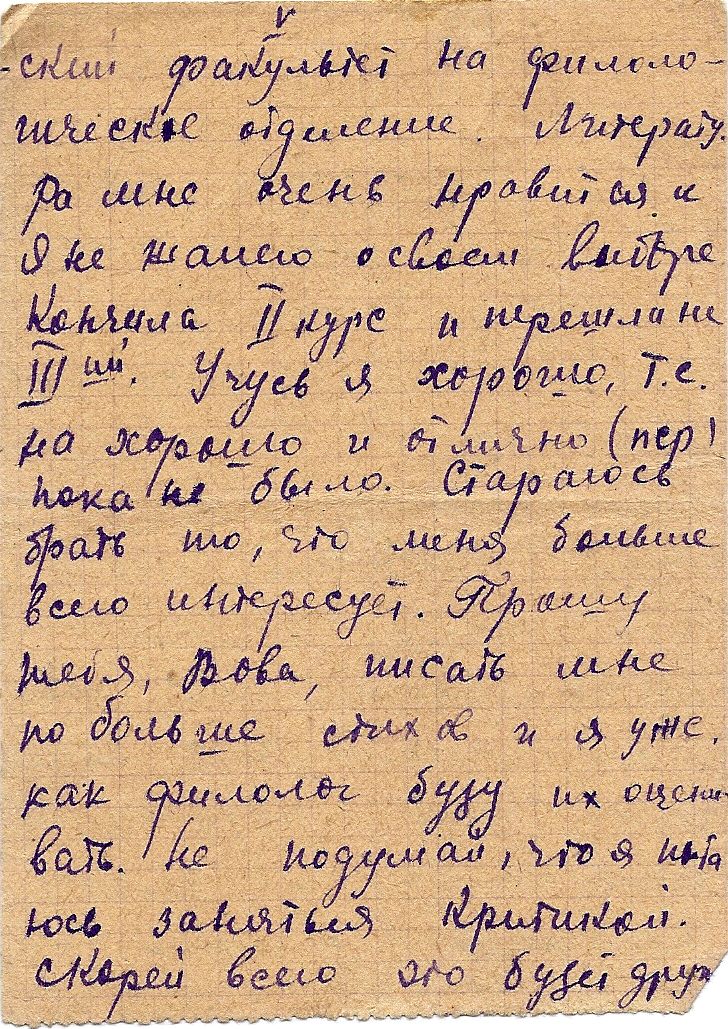 V
-ский факультет на филоло-
гическое отделение. Литерату-
ра мне очень нравится и
я не жалею о своем выборе
Кончила II курс и перешла на
III ий. Учусь я хорошо, т.е.
на хорошо и отлично (пср)
пока не было. Стараюсь
брать то, что меня больше
всего интересует. Прошу
тебя, Вова, писать мне
по больше стихов и я уже,
как филолог буду их оцени-
вать. Не подумай, что я пыта
юсь заняться критикой.
Скорей всего это будет друж